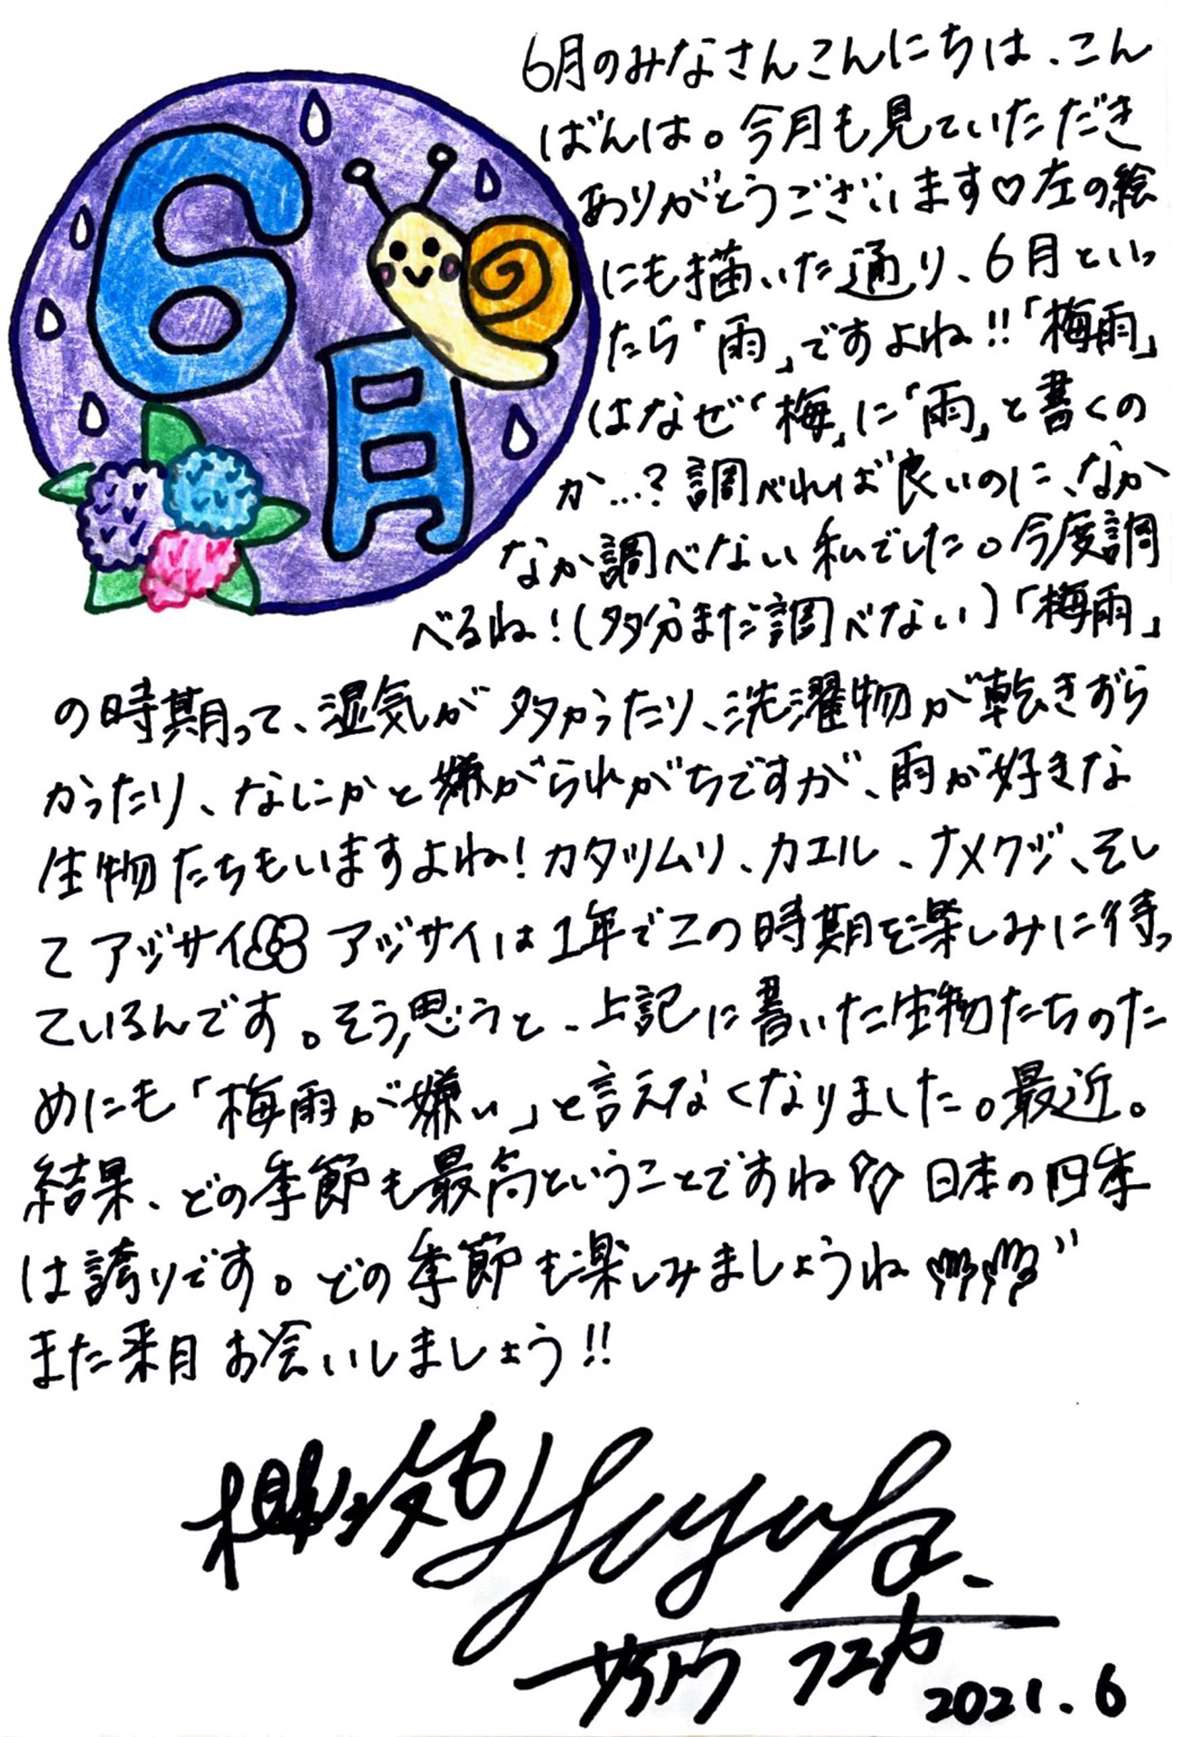 6月
6月のみなさんこんにちは、こん
ばんは。今月も見ていただき
ありがとうございます♡左の絵
にも描いた通り、6月といっ
たら「雨」ですよね!!「梅雨」
はなぜ「梅」に「雨」と書くの
か…?調べれば良いのに、なか
なか調べない私でした。今度調
べるね!(多分まだ調べない)「梅雨」
の時期って、湿気が多かったり、洗濯物が乾きずら
かったり、なにかと嫌がられがちですが、雨が好きな
生物たちもいますよね!カタツムリ、カエル、ナメクジ、そし
てアヅサイ アヅサイは1年でこの時期を楽しみに待っ
ているんです。そう思うと、上記に書いた生物たちのた
めにも「梅雨が嫌い」と言えなくなりました。最近。
結果、どの季節も最高ということですね 日本の四季
は誇りです。どの季節も楽しみましょうね
また来月お会いしましょう!!
フユカ
2021.6